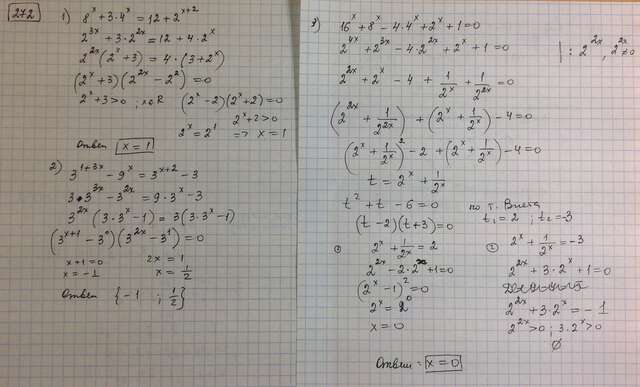 272
1) 8^x + 3·4^x = 12 + 2^{x+2}
2^{3x} + 3·2^{2x} = 12 + 4·2^x
2^{2x}(2^x + 3) = 4·(3 + 2^x)
(2^x + 3)(2^{2x} - 2^2) = 0
2^x + 3 > 0 ; x∈R (2^x - 2)(2^x + 2) = 0
2^x + 2 > 0
2^x = 2^1 => x = 1
Ответ x = 1
2) 3^{1+3x} - 9^x = 3^{x+2} - 3
3·3^{3x} - 3^{2x} = 9·3^x - 3
3^{2x}(3·3^x - 1) = 3(3·3^x - 1)
(3^{x+1} - 3^0)(3^{2x} - 3^1) = 0
x + 1 = 0 2x = 1
x = -1 x = 1/2
Ответ {-1 ; 1/2}
3) 16^x + 8^x - 4·4^x + 2^x + 1 = 0
2^{4x} + 2^{3x} - 4·2^{2x} + 2^x + 1 = 0 | : 2^{2x}, 2^{2x} ≠ 0
2^{2x} + 2^x - 4 + 1/2^x + 1/2^{2x} = 0
(2^{2x} + 1/2^{2x}) + (2^x + 1/2^x) - 4 = 0
(2^x + 1/2^x)^2 - 2 + (2^x + 1/2^x) - 4 = 0
t = 2^x + 1/2^x
t^2 + t - 6 = 0 по т. Виета
(t - 2)(t + 3) = 0 t₁ = 2 ; t₂ = -3
① 2^x + 1/2^x = 2
2^{2x} - 2·2^x + 1 = 0
(2^x - 1)^2 = 0
2^x = 2^0
x = 0
② 2^x + 1/2^x = -3
2^{2x} + 3·2^x + 1 = 0
2^{2x} + 3·2^x = -1
2^{2x} > 0 ; 3·2^x > 0
∅
Ответ = x = 0